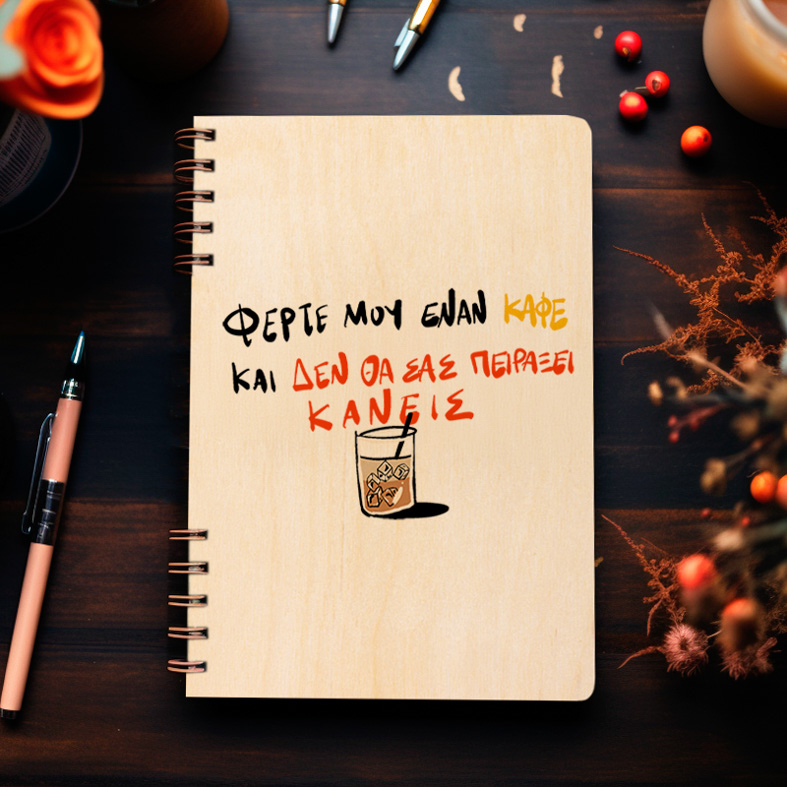 ΦΕΡΤΕ ΜΟΥ ΕΝΑΝ ΚΑΦΕ
ΚΑΙ ΔΕΝ ΘΑ ΣΑΣ ΠΕΙΡΑΞΕΙ
ΚΑΝΕΙΣ